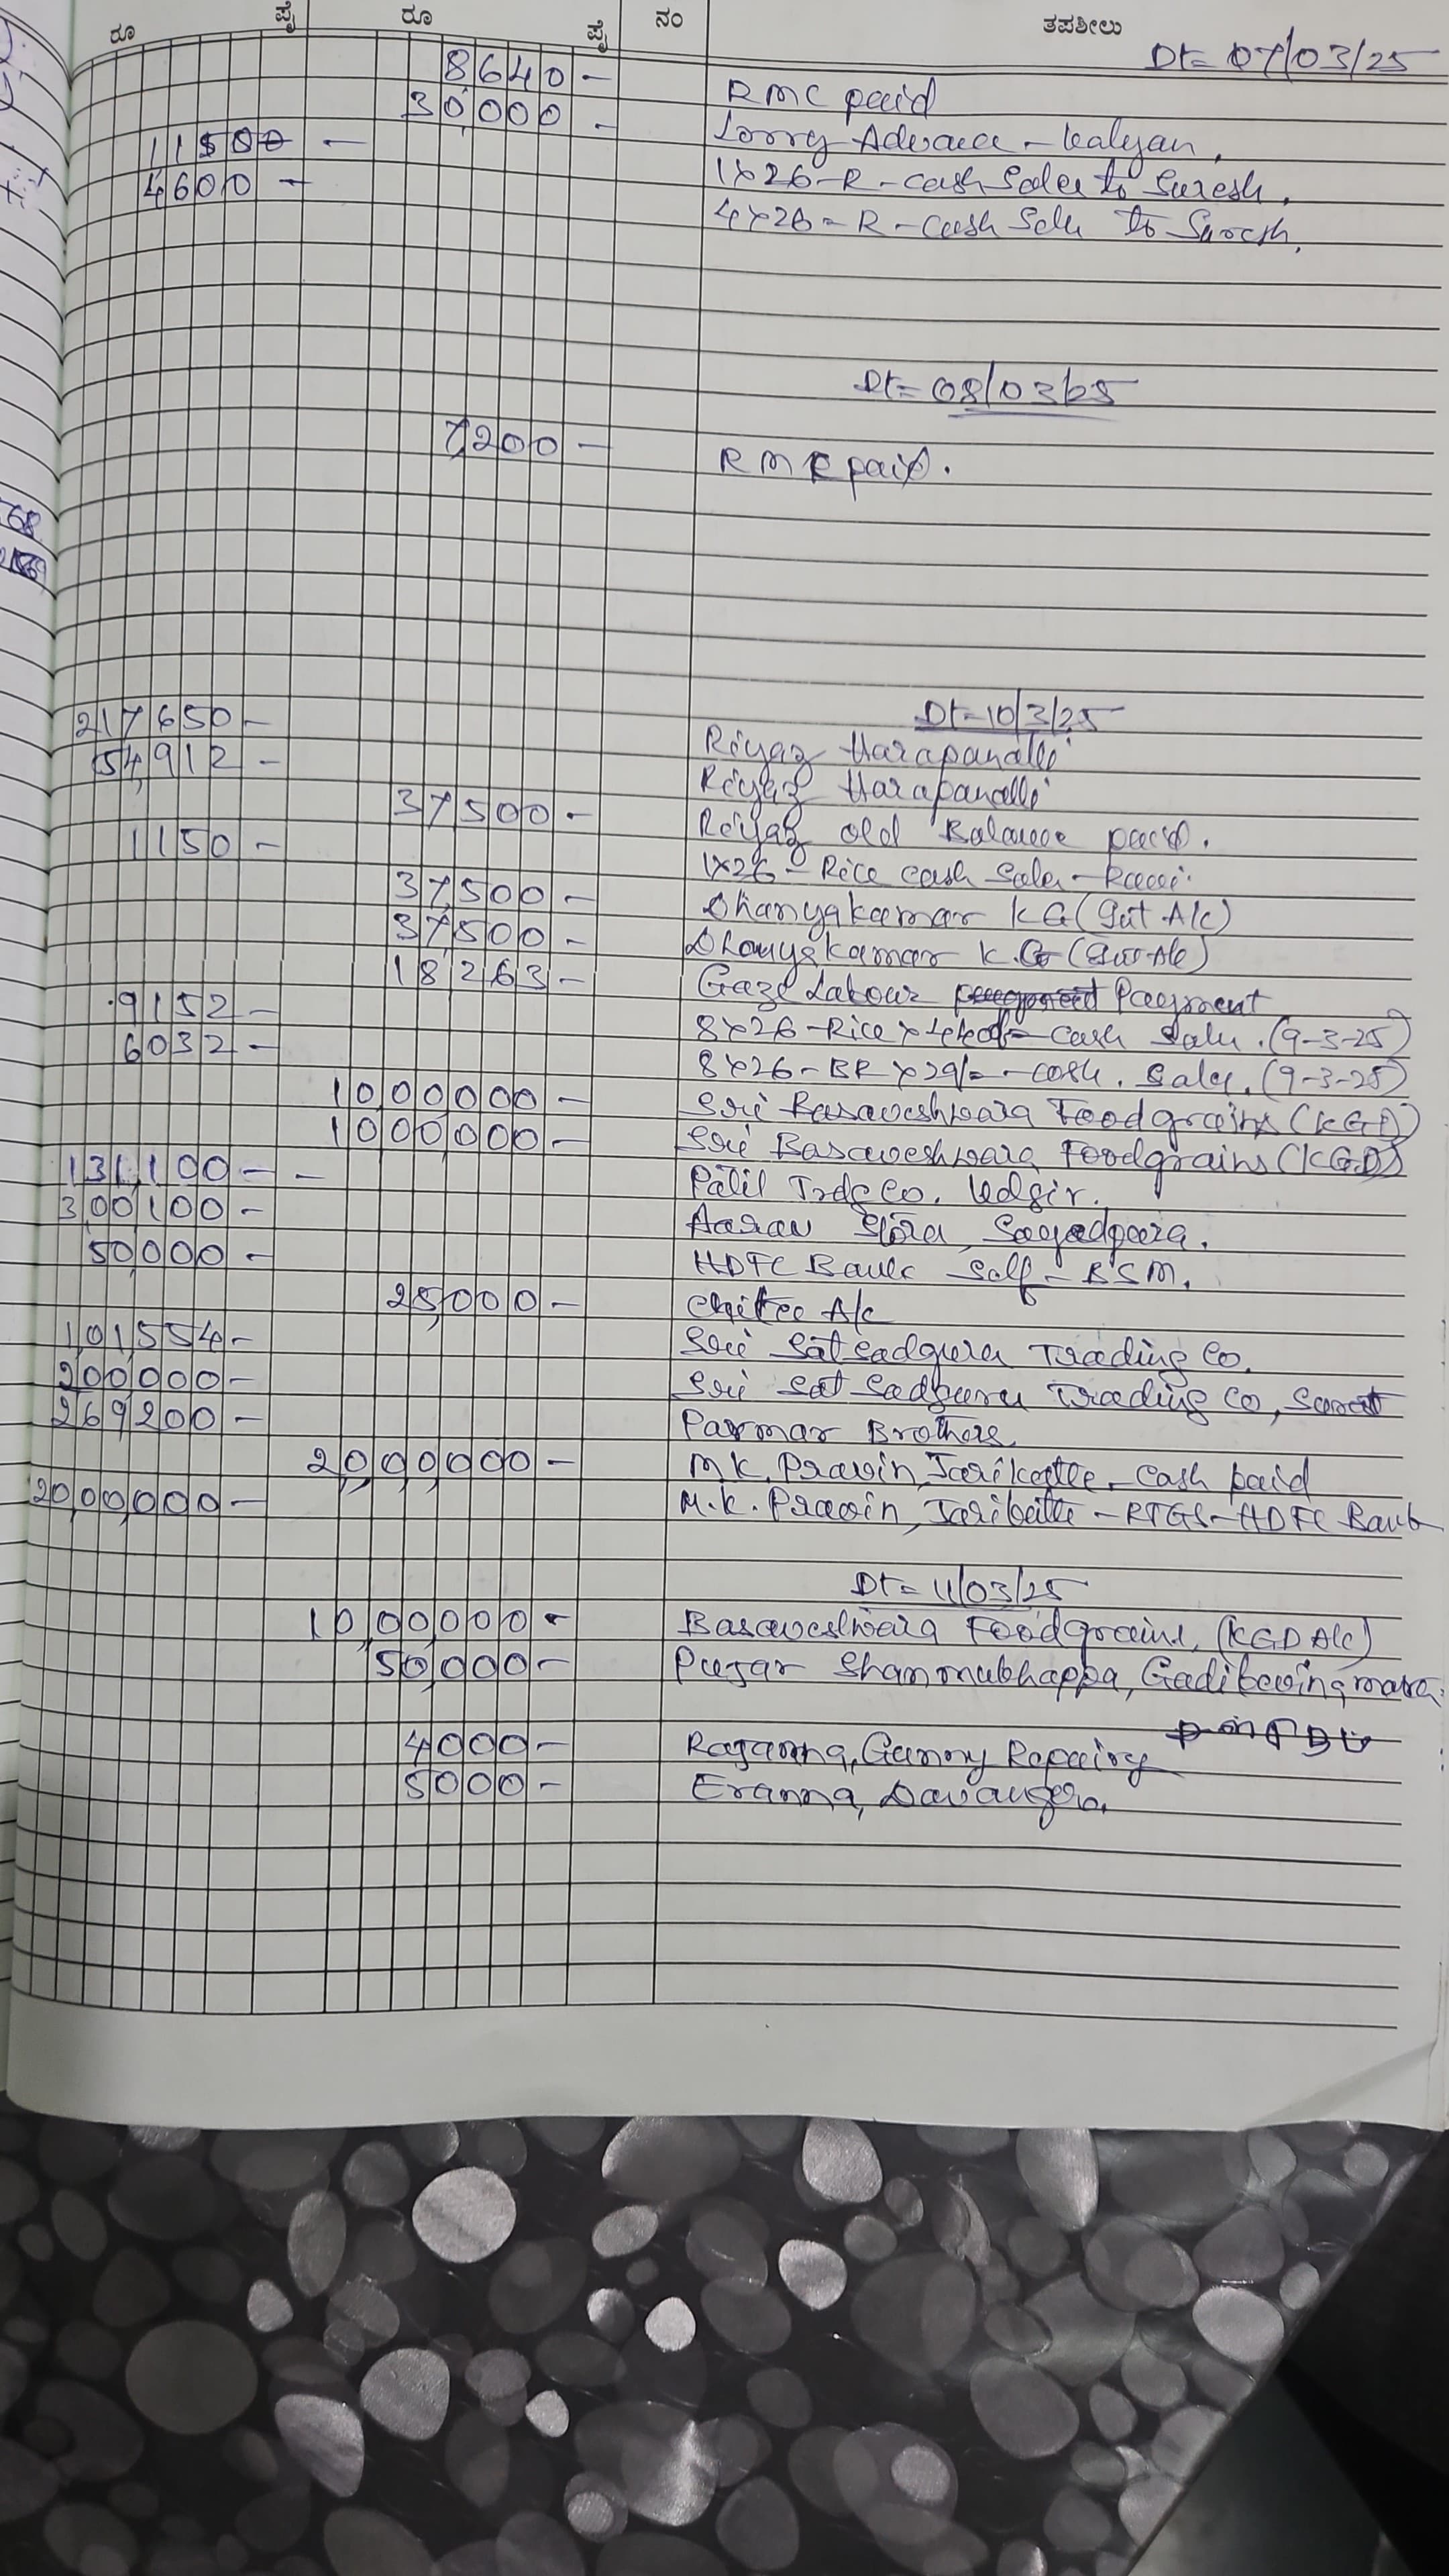 ರೂ ಪೈ ರೂ ಪೈ ನಂ ತಪಶೀಲು
Dt= 07/03/25
8640 – RMC paid
30000 – Lorry Advance – Kalyan,
1150 – 1x26–R–cash Sales to Suresh,
4600 – 4x26–R–cash Sale to Suresh,
Dt= 08/03/25
7,200 – RMC paid.
Dt=10/3/25
217650 – Riyaz Harapanalli
54,912 – Riyaz Harapanalli
37500 – Riyaz old Balance paid.
1150 – 1x26–Rice cash Sales–
37,500 – Dhanyakumar KG (
37,500 – Dhanyakumar K.G (
18,263 – Labour Payment
9152 – 8x26–Rice – cash Sale. (9–3–25)
6032 – 8x26–BR x29/= – cash. Sales. (9–3–25)
10,00,000 – Sri Basaveshwara Foodgrains (KGD)
10,00,000 – Sri Basaveshwara Foodgrains (KGD)
131,100 – – Patil Trdg Co. Udgir.
3,00,100 – Aarav Store,
50,000 – HDFC Bank Self – BSM.
25,000 – A/c
1,01,554 – Sri Sat Sadguru Trading Co.
200000 – Sri Sat Sadguru Trading Co,
269200 – Parmar Brothers,
20,00,000 – M.K. Pravin, Tarikatte – cash paid
20,00,000 – M.K. Pravin, Tarikatte – RTGS–HDFC Bank
Dt= 11/03/25
10,00,000 – Basaveshwara Foodgrains, (KGD A/c)
50,000 – Pujar Shanmukhappa,
4000 – Rajanna, Gunny Repairy
5000 – Eranna, Davangere.